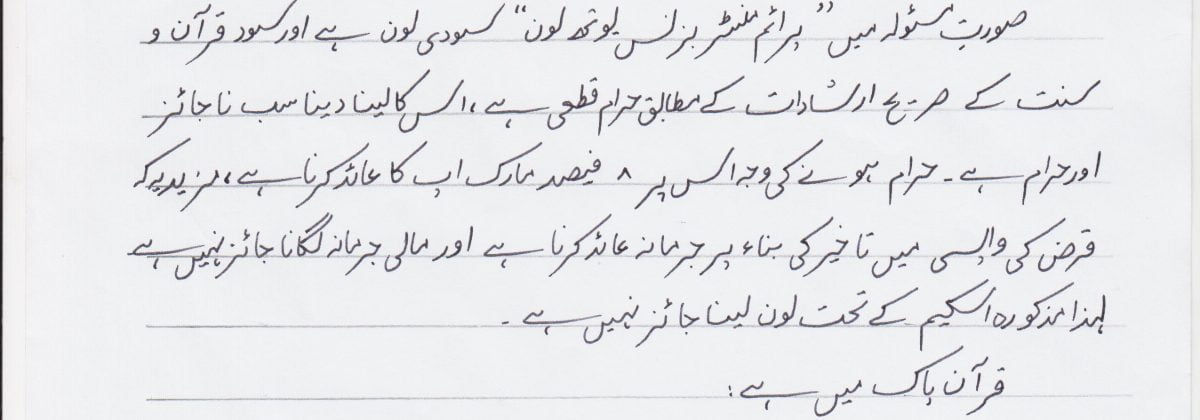 صورتِ مسئولہ میں ”پرائم منسٹر بزنس یوتھ لون“ سودی لون ہے اور سود قرآن و
سنت کے صریح ارشادات کے مطابق حرام قطعی ہے، اس کا لینا دینا سب ناجائز
اور حرام ہے۔ حرام ہونے کی وجہ اس پر ۸ فیصد مارک اپ کا عائد کرنا ہے، مزید یہ کہ
قرض کی واپسی میں تاخیر کی بناء پر جرمانہ عائد کرنا ہے اور مالی جرمانہ لگانا جائز نہیں ہے
لہذا مذکورہ اسکیم کے تحت لون لینا جائز نہیں ہے۔
قرآن پاک میں ہے: